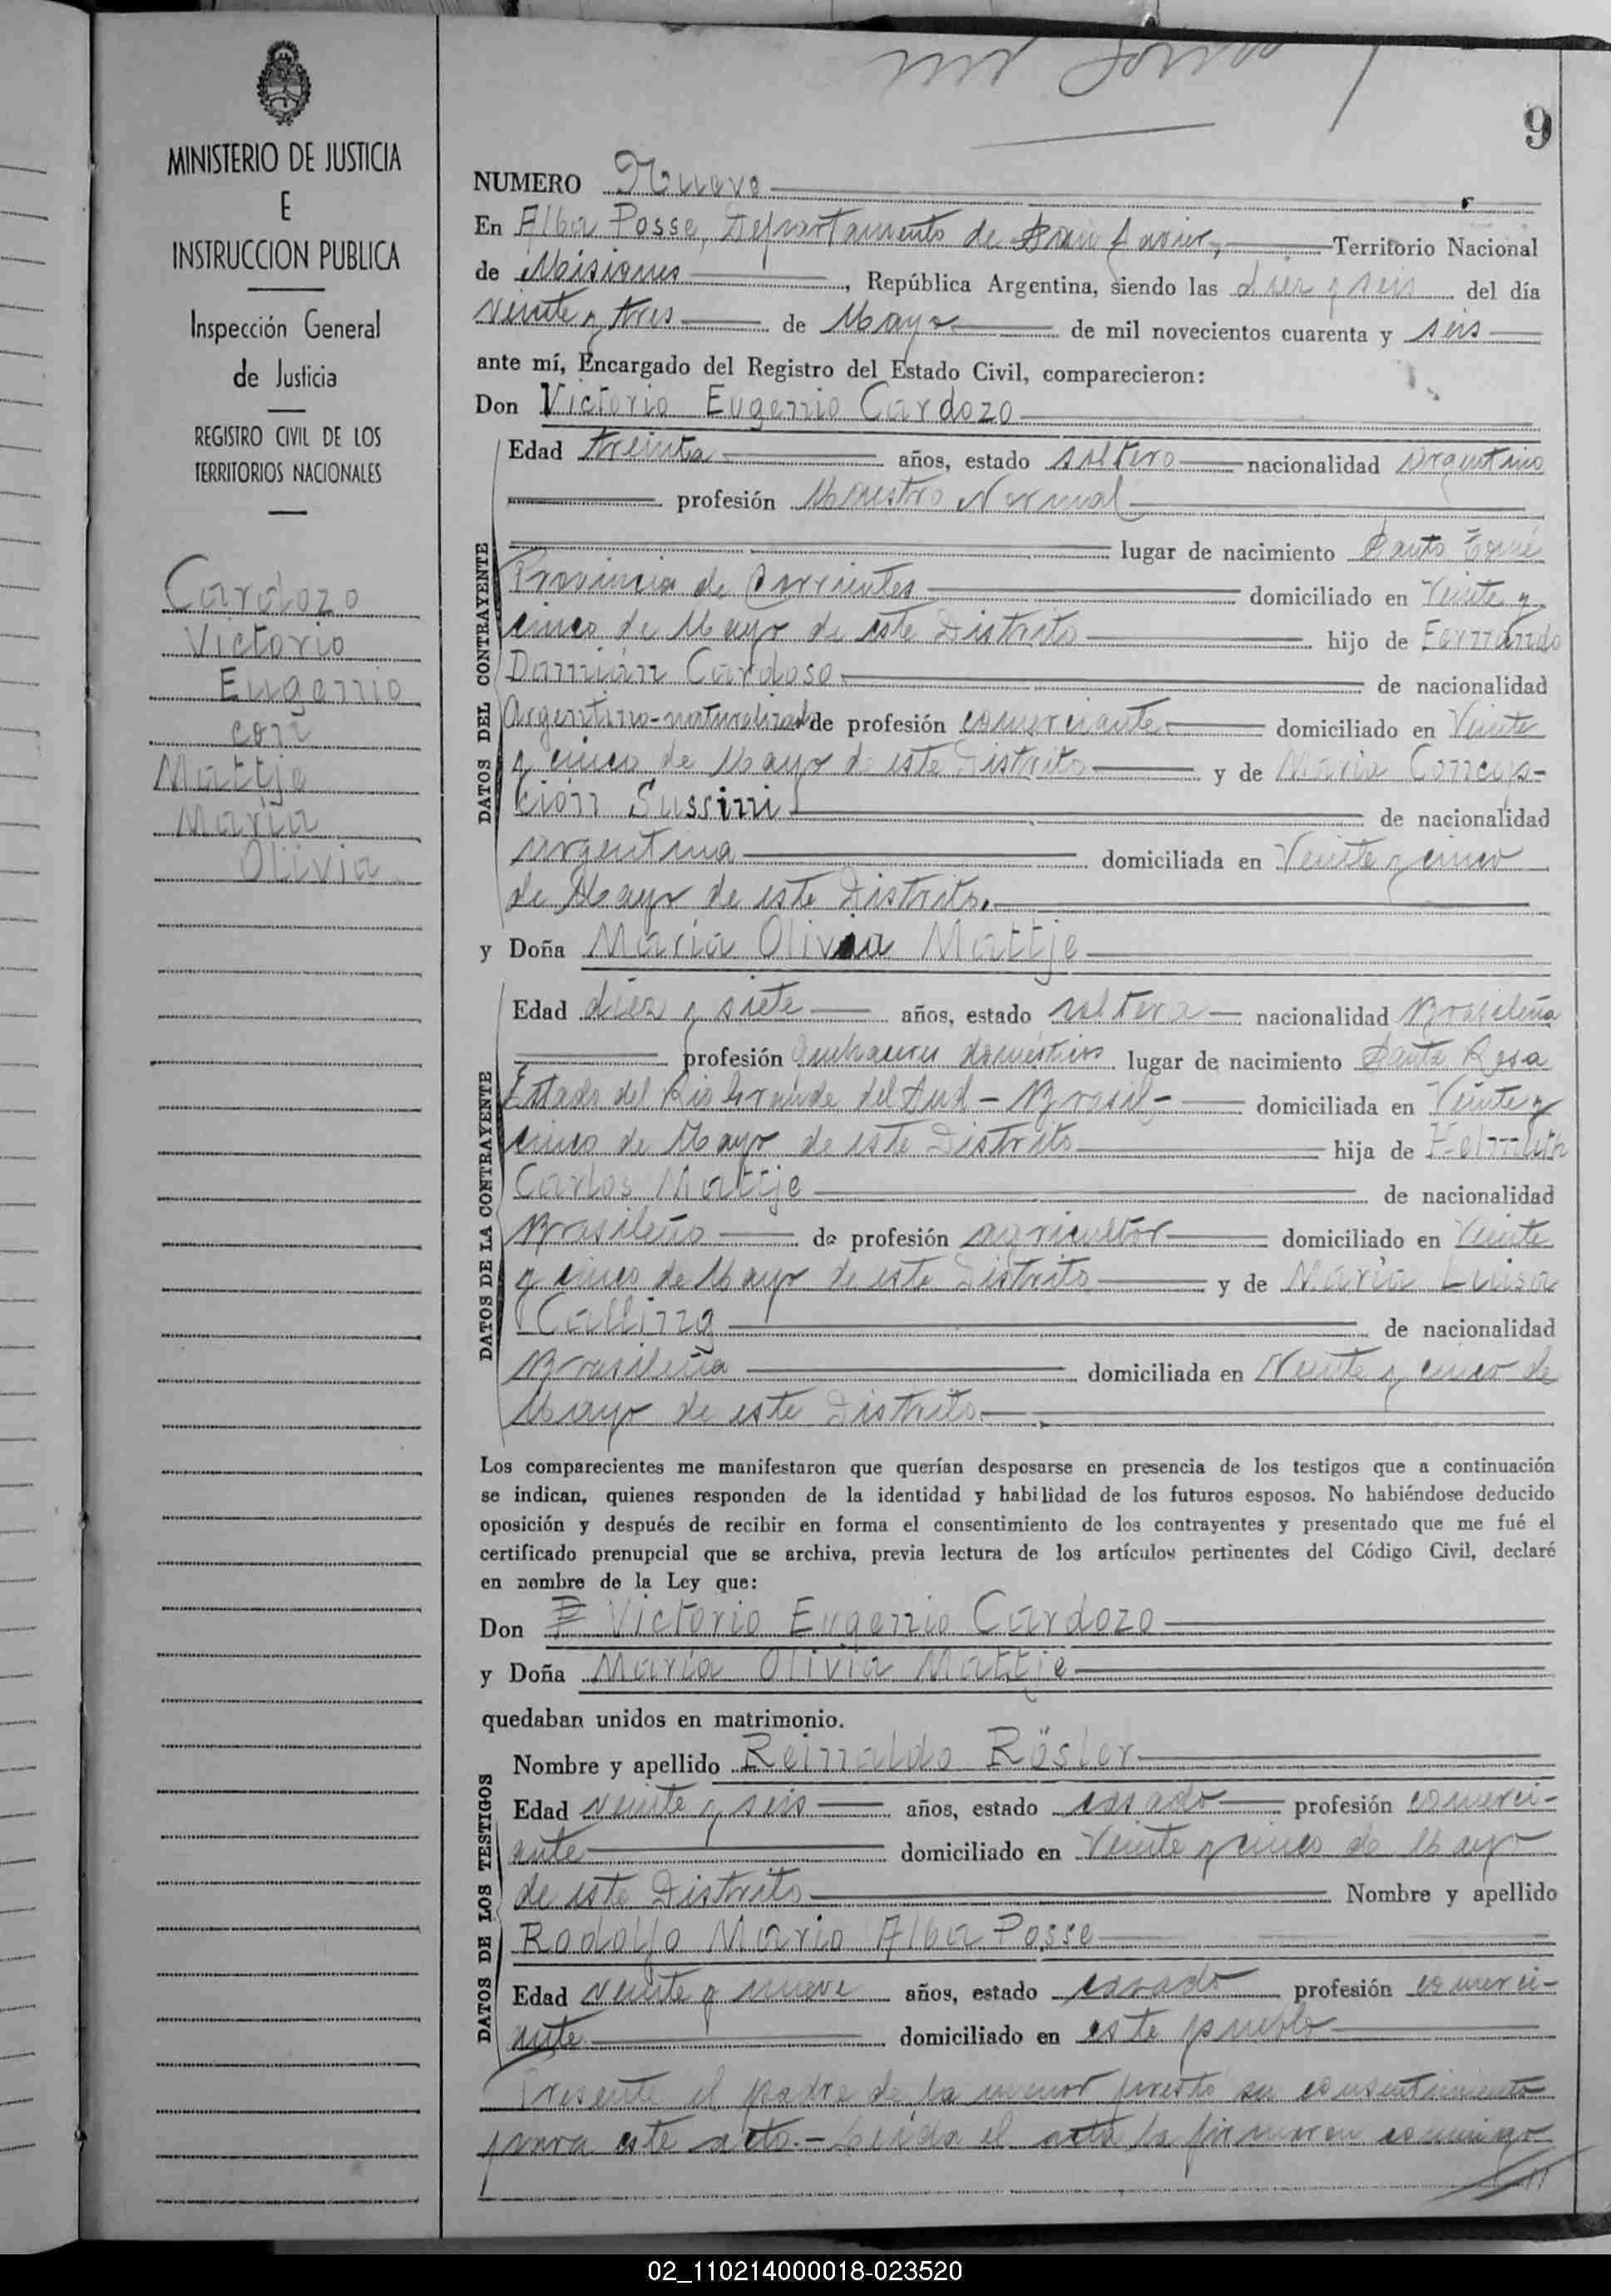 9
MINISTERIO DE JUSTICIA
E
INSTRUCCION PUBLICA
Inspección General
de Justicia
REGISTRO CIVIL DE LOS
TERRITORIOS NACIONALES
Cardozo
Victorio
Eugenio
con
Mattje
María
Olivia
NUMERO Nueve
En Alba Posse, Departamento de San Javier, Territorio Nacional
de Misiones, República Argentina, siendo las diez y seis del día
veinte y tres de Mayo de mil novecientos cuarenta y seis
ante mí, Encargado del Registro del Estado Civil, comparecieron:
Don Victorio Eugenio Cardozo
DATOS DEL CONTRAYENTE
Edad treinta años, estado soltero nacionalidad Argentino
profesión Maestro Normal
lugar de nacimiento Santo Tomé
Provincia de Corrientes domiciliado en Veinte y
cinco de Mayo de este Distrito hijo de Fernando
Damián Cardoso de nacionalidad
Argentino-naturalizado de profesión comerciante domiciliado en Veinte
y cinco de Mayo de este Distrito y de María Concep-
ción Sussini de nacionalidad
argentina domiciliada en Veinte y cinco
de Mayo de este Distrito.
y Doña María Olivia Mattje
DATOS DE LA CONTRAYENTE
Edad diez y siete años, estado soltera nacionalidad Brasileña
profesión Quehaceres domésticos lugar de nacimiento Santa Rosa
Estado del Rio Grande del Sud - Brasil - domiciliada en Veinte y
cinco de Mayo de este Distrito hija de Helmuth
Carlos Mattje de nacionalidad
Brasileño de profesión agricultor domiciliado en Veinte
y cinco de Mayo de este Distrito y de María Luisa
Calling de nacionalidad
Brasileña domiciliada en Veinte y cinco de
Mayo de este Distrito.
Los comparecientes me manifestaron que querían desposarse en presencia de los testigos que a continuación
se indican, quienes responden de la identidad y habilidad de los futuros esposos. No habiéndose deducido
oposición y después de recibir en forma el consentimiento de los contrayentes y presentado que me fué el
certificado prenupcial que se archiva, previa lectura de los artículos pertinentes del Código Civil, declaré
en nombre de la Ley que:
Don Victorio Eugenio Cardozo
y Doña María Olivia Mattje
quedaban unidos en matrimonio.
DATOS DE LOS TESTIGOS
Nombre y apellido Reinaldo Rösler
Edad veinte y seis años, estado casado profesión comerci-
ante domiciliado en Veinte y cinco de Mayo
de este Distrito Nombre y apellido
Rodolfo Mario Alba Posse
Edad veinte y nueve años, estado casado profesión comerci-
ante domiciliado en este pueblo
Presente el padre de la menor presto su consentimiento
para este acto.- Leída el acta la firmaron conmigo
02_110214000018-023520